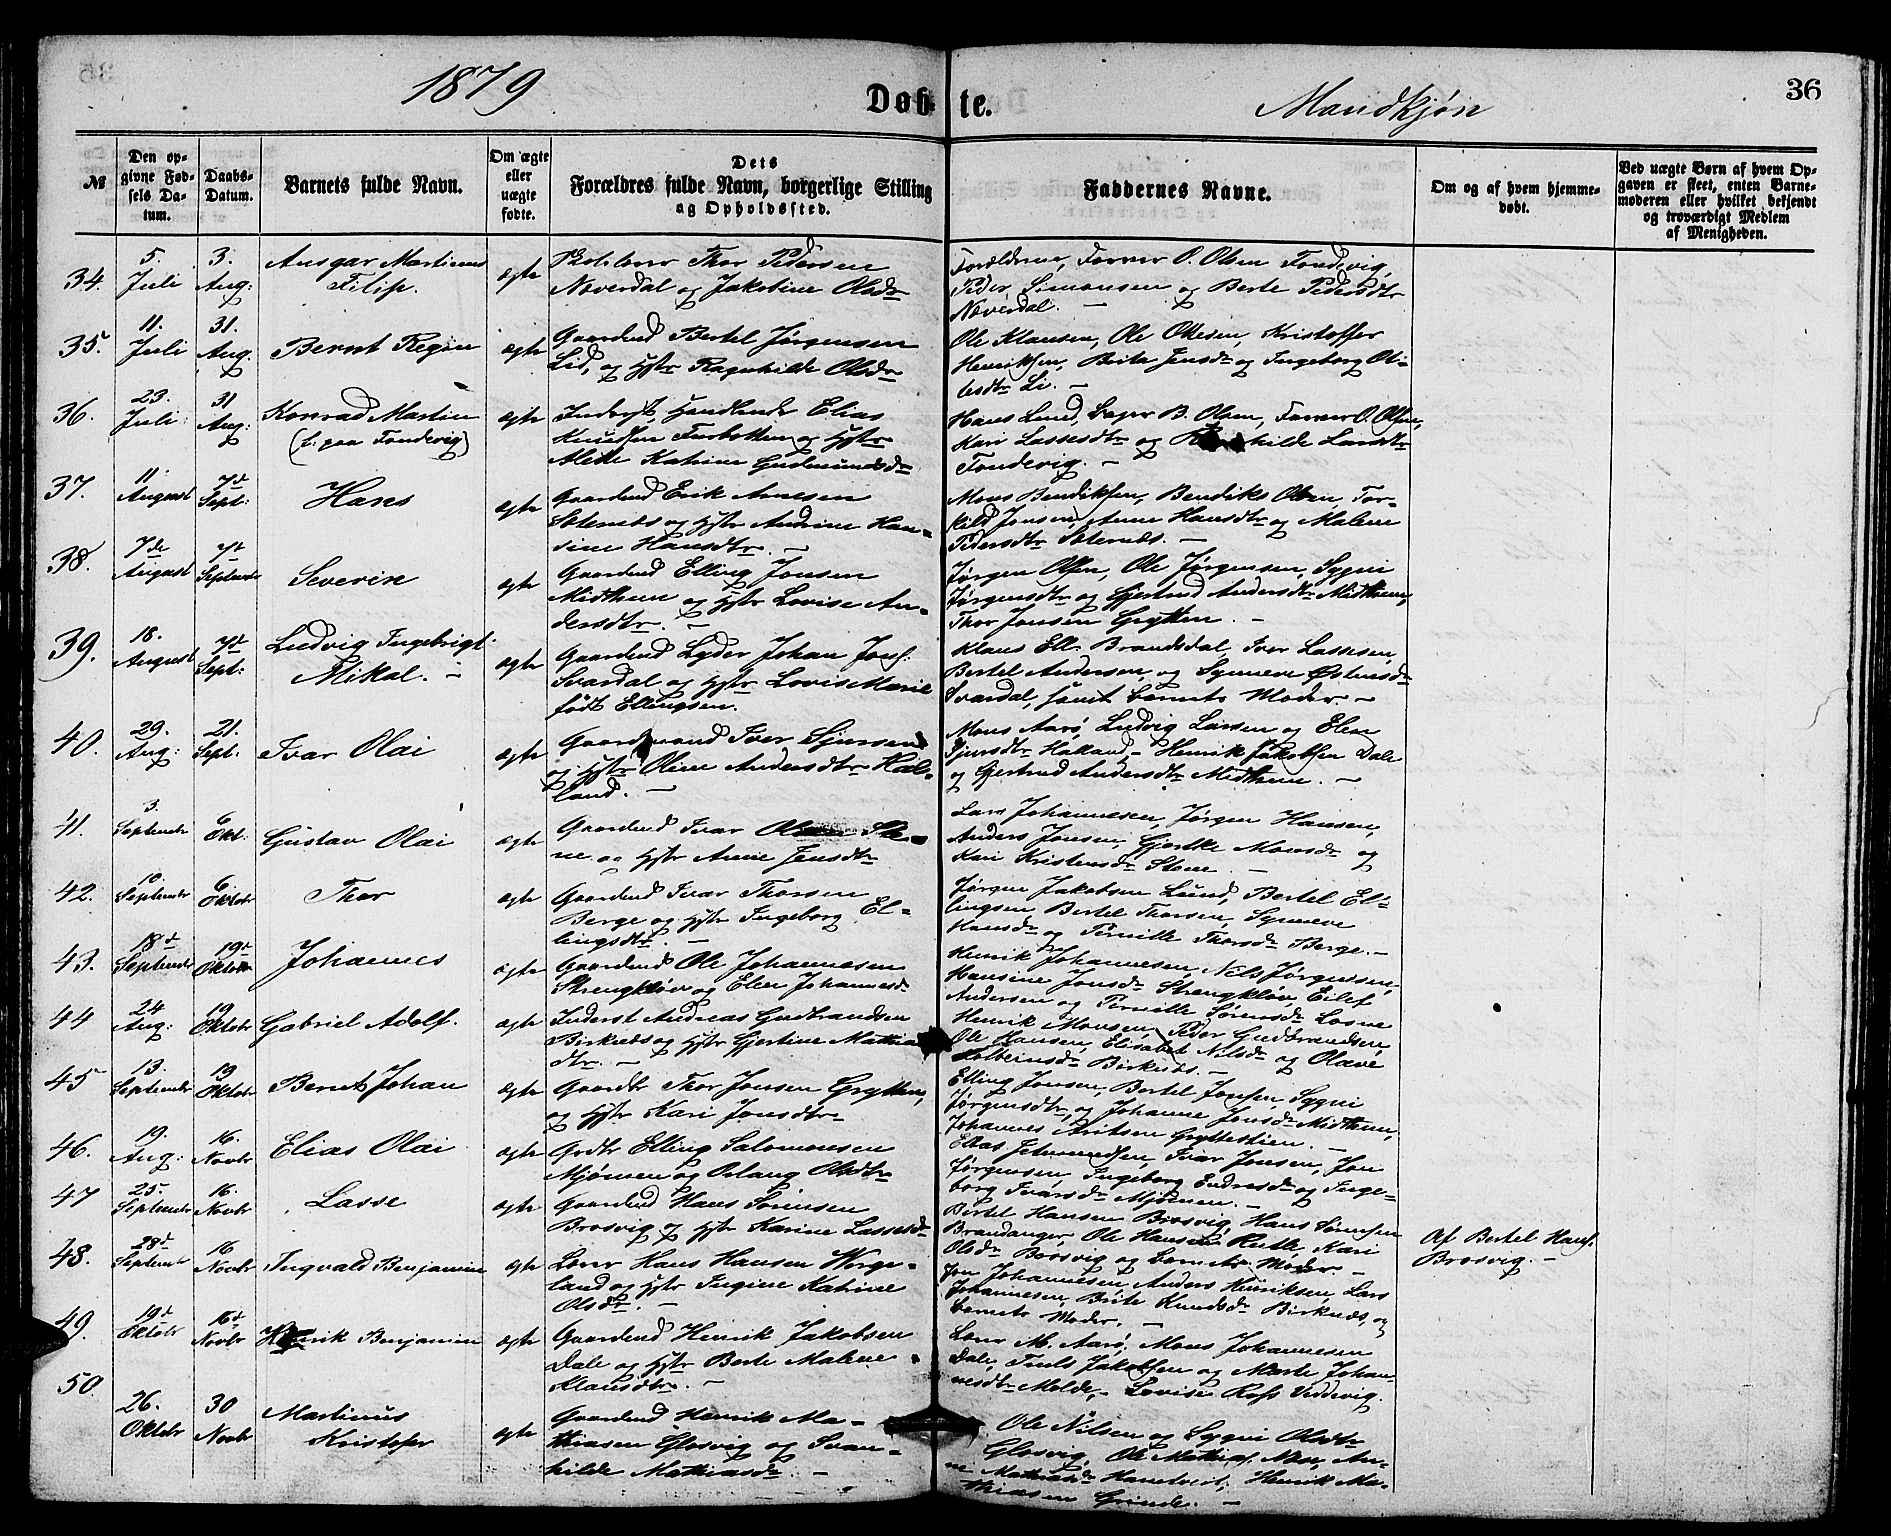 1879
Døbte.
Mandkjøn
36
№
Den opgivne Fødsels Datum.
Daabs-Datum.
Barnets fulde Navn.
Om ægte eller uægte fødte.
Dets Forældres fulde Navn, borgerlige Stilling og Opholdssted.
Faddernes Navne.
Om og af hvem hjemmedøbt.
Ved uægte Børn af hvem Opgaven er skeet, enten Barnemoderen eller hvilket bekjendt og troværdigt Medlem af Menigheden.
34. 5. Juli 3. Aug: Ansgar Martinus Filip. ægte
Thor Pedersen
Nøverdal og Jakobine Olsdr
Forældrene, Farver O. Olsen Tondevig,
Peder Simonsen og Berte Pedersdtr
Nøverdal. –
35. 11. Juli 31. Aug. Bernt Regin ægte
Gaardmd Bertel Jørgensen
Lid, og Hstr Ragnhilde Olsdr
Ole Klausen, Ole Olesen, Kristoffer
Henriksen, Brita Jensdr og Ingeborg Ol-
lesdtr Li. –
36. 23. Juli 31 Aug: Konrad Martin (f: paa Tondevig) ægte
Indbygt. Handlende Elias
Knudsen Furbotten og Hstr
Alette Katrine Gudmundsdr
Hans Lund, Bager B. Olsen, Farver O. Olsen,
Kari Lassesdtr og Larsdtr
Tondevig. –
37. 11. August 7d Sept: Hans ægte
Gaardmd Erik Arnesen
Steernæs og Hstr Andrine Han-
sine Hansdtr. –
Mons Bendiksen, Bendiks Olsen, Tor-
kild Jonsen, Anne Hansdtr og Malene
Pedersdtr Sternæs. –
38. 7de August 7d Septembr Severin ægte
Gaardmd Elling Jonsen
Midthun og Hstr Lovise An-
dersdtr. –
Jørgen Olsen, Ole Jørgensen, Sygni
Jørgensdtr og Gjertrud Andersdtr Midthun,
Thor Jonsen Grytten. –
39. 18. August 7d Sept: Ludvig Ingebrigt Mikal. – ægte
Gaardmd Lyder Johan Jons:
Svardal og Hstr Lovis Marie
født Ellingsen.
Klaus Ell. Brandsdal, Iver Lassesen,
Bertel Andersen og Synneve Østensdr
Svardal, samt barnets Moder. –
40. 29. Aug: 21. Sept: Ivar Olai ægte
Gaardmand Iver Sjursen
og Hstr Oline Andersdtr Hal-
land. –
Mons Aarø, Ludvig Larsen og Elen
Sjursdtr Halland, – Henrik Jakobsen Dale
og Gjertrud Andersdtr Midthun. –
41. 3. Septembr 6 Okt: Gustav Olai ægte
Gaardmd Ivar Olsen Ste-
ne og Hstr Anne Jensdtr
Lars Johannesen, Jørgen Hansen,
Anders Jonsen, Gjertke Monsdr og
Kari Kristensdr Stene. –
42. 10. Septembr 6 Oktobr Thor ægte
Gaardmd Ivar Thorsen
Berge og Hstr Ingeborg El-
lingsdtr. –
Jørgen Jakobsen Lund, Bertel El-
lingsen, Bertel Thorsen, Synneve
Hansdr og Pernille Thorsdr Berge. –
43. 18d Septembr 19d Oktobr Johannes ægte
Gaardmd Ole Johannesen
Strengkløv og Elen Johannesdr
Henrik Johannesen, Nils Jørgensen,
Hansine Jonsdr Strengkløv, Eilef
Andersen og Pernille Sørensdr Losne
44 24 Aug: 19 Oktobr Gabriel Adolf. ægte
Inderst Andreas Gudbrandsen
Birknæs og Hstr Gjertine Mathias
dtr. –
Henrik Monsen, Peder Gudbrandsen,
Ole Hansen, Elisabet Nilsdr og Olave
Birknæs. –
45 13. Septembr 19 Oktobr Bernt Johan ægte
Gaardbr Thor Jonsen Grytten,
og Hstr Kari Jonsdtr
Elling Jonsen, Bertel Jonsen, Sygni
Jørgensdtr, og Johanne Jonsdr Midthun,
Johannes Gryttestien. –
46. 19. Aug: 16. Novbr Elias Olai ægte
Grdbr Elling Salomonsen
Mjømen og Oslaug Olsdtr
Elias Ivar Jonsen, Jon
Jørgensen, Ingeborg Endresdr og Inge-
borg Ivarsdr Mjømen. –
47 25. Septembr 16. Novbr Lasse ægte
Gaardmd Hans Sørensen
Brosvig og Hstr Karine Lassesdr
Bertel Hansen Brosvig, Hans Sørensen
Brandanger, Ole Hansen Rutle, Kari
Olsdr Brosvig og barnets Moder. –
Af Bertel Hans:
Brosvig. –
48. 28d Septembr 16 Novbr Ingvald Benjamin ægte
Lærer Hans Hansen Werge-
land og Hstr Ingine Katrine
Olsdr. –
Jon Johannesen, Anders Henriksen, Lars
Johannesen, Brite Knudsdr Birknæs, og
barnets Moder. –
49. 19d Oktobr 16d Novbr Henrik Benjamin ægte
Gaardmd Henrik Jakobsen
Dale og Hstr Berte Malene
Klausdtr. –
Lærer M. Aarø, Mons Johannesen
Dale, Jakobsen og Marte Johan-
nesdtr Molde, – Lovise Ross Veddevig.
50. 26. Oktobr 30 Novbr Martinus Kristofer ægte
Gaardmd Henrik Ma-
thiasen Glosvig og Svan-
hilde Mathiasdr. –
Ole Nilsen og Sygni Olsdtr
Glosvig, Ole Mathias: Næs, An-
ne Mathiasdr Henrik Ma-
thiasen Grinde. –